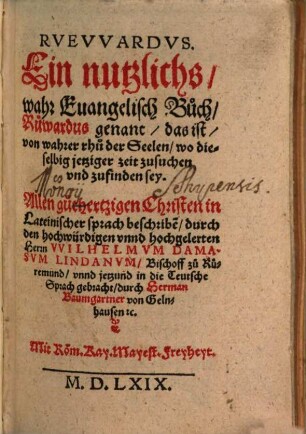 RVEVVARDVS.
Ein nutzlichs/
wahr Euangelisch Bůch/
Růwardus genant / das ist/
von wahrer rhů der Seelen/ wo die-
selbig jetziger zeit zusuchen
vnd zufinden sey.
Allen gůthertzigen Christen in
Lateinischer sprach beschribē/ durch
den hochwürdigen vnnd hochgelerten
Herrn VVILHELMVM DAMA-
SVM LINDANVM/ Bischoff zů Rů-
remund/ vnnd jetzund in die Teutsche
Sprach gebracht/ durch Herman
Baumgartner von Geln-
hausen ꝛc.
Mit Röm. Kay. Mayest. Freyheyt.
M. D. LXIX.